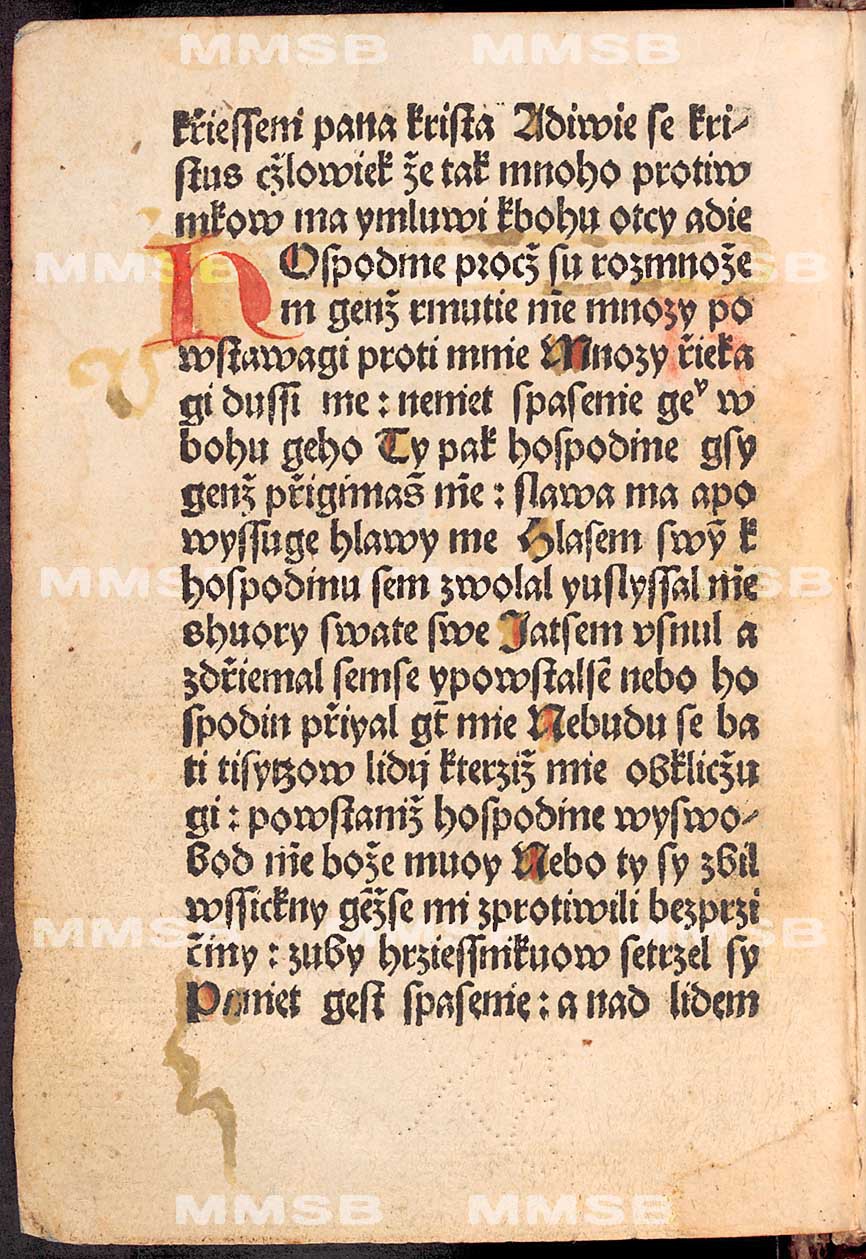 křiesseni pana krista Adiwie se kri⸗
stus cžlowiek že tak mnoho protiw
nikow ma ymluwi kbohu otcy adie
HOspodine procž su rozmnože
ni genž rmutie mě mnozy po
wstawagi proti mnie Mnozy řieka
gi dussi me : neniet spasenie geͮ w
bohu geho Ty pak hospodine gsy
genž přigimaš mě : slawa ma apo
wyssuge hlawy me Hlasem swỹ k
hospodinu sem zwolal yuslyssal mě
shuory swate swe Jatsem vsnul a
zdřiemal semse ypowstalsē nebo ho
spodin přiyal gt̄ mie Nebudu se ba
ti tisytzow lidij kterziž mie obkličžu
gi : powstaniž hospodine wyswo⸗
bod mě bože muoy Nebo ty sy zbil
wssickny gēžse mi zprotiwili bezprzi
činy : zuby hrziessnikuow setrzel sy
Paniet gest spasenie : a nad lidem